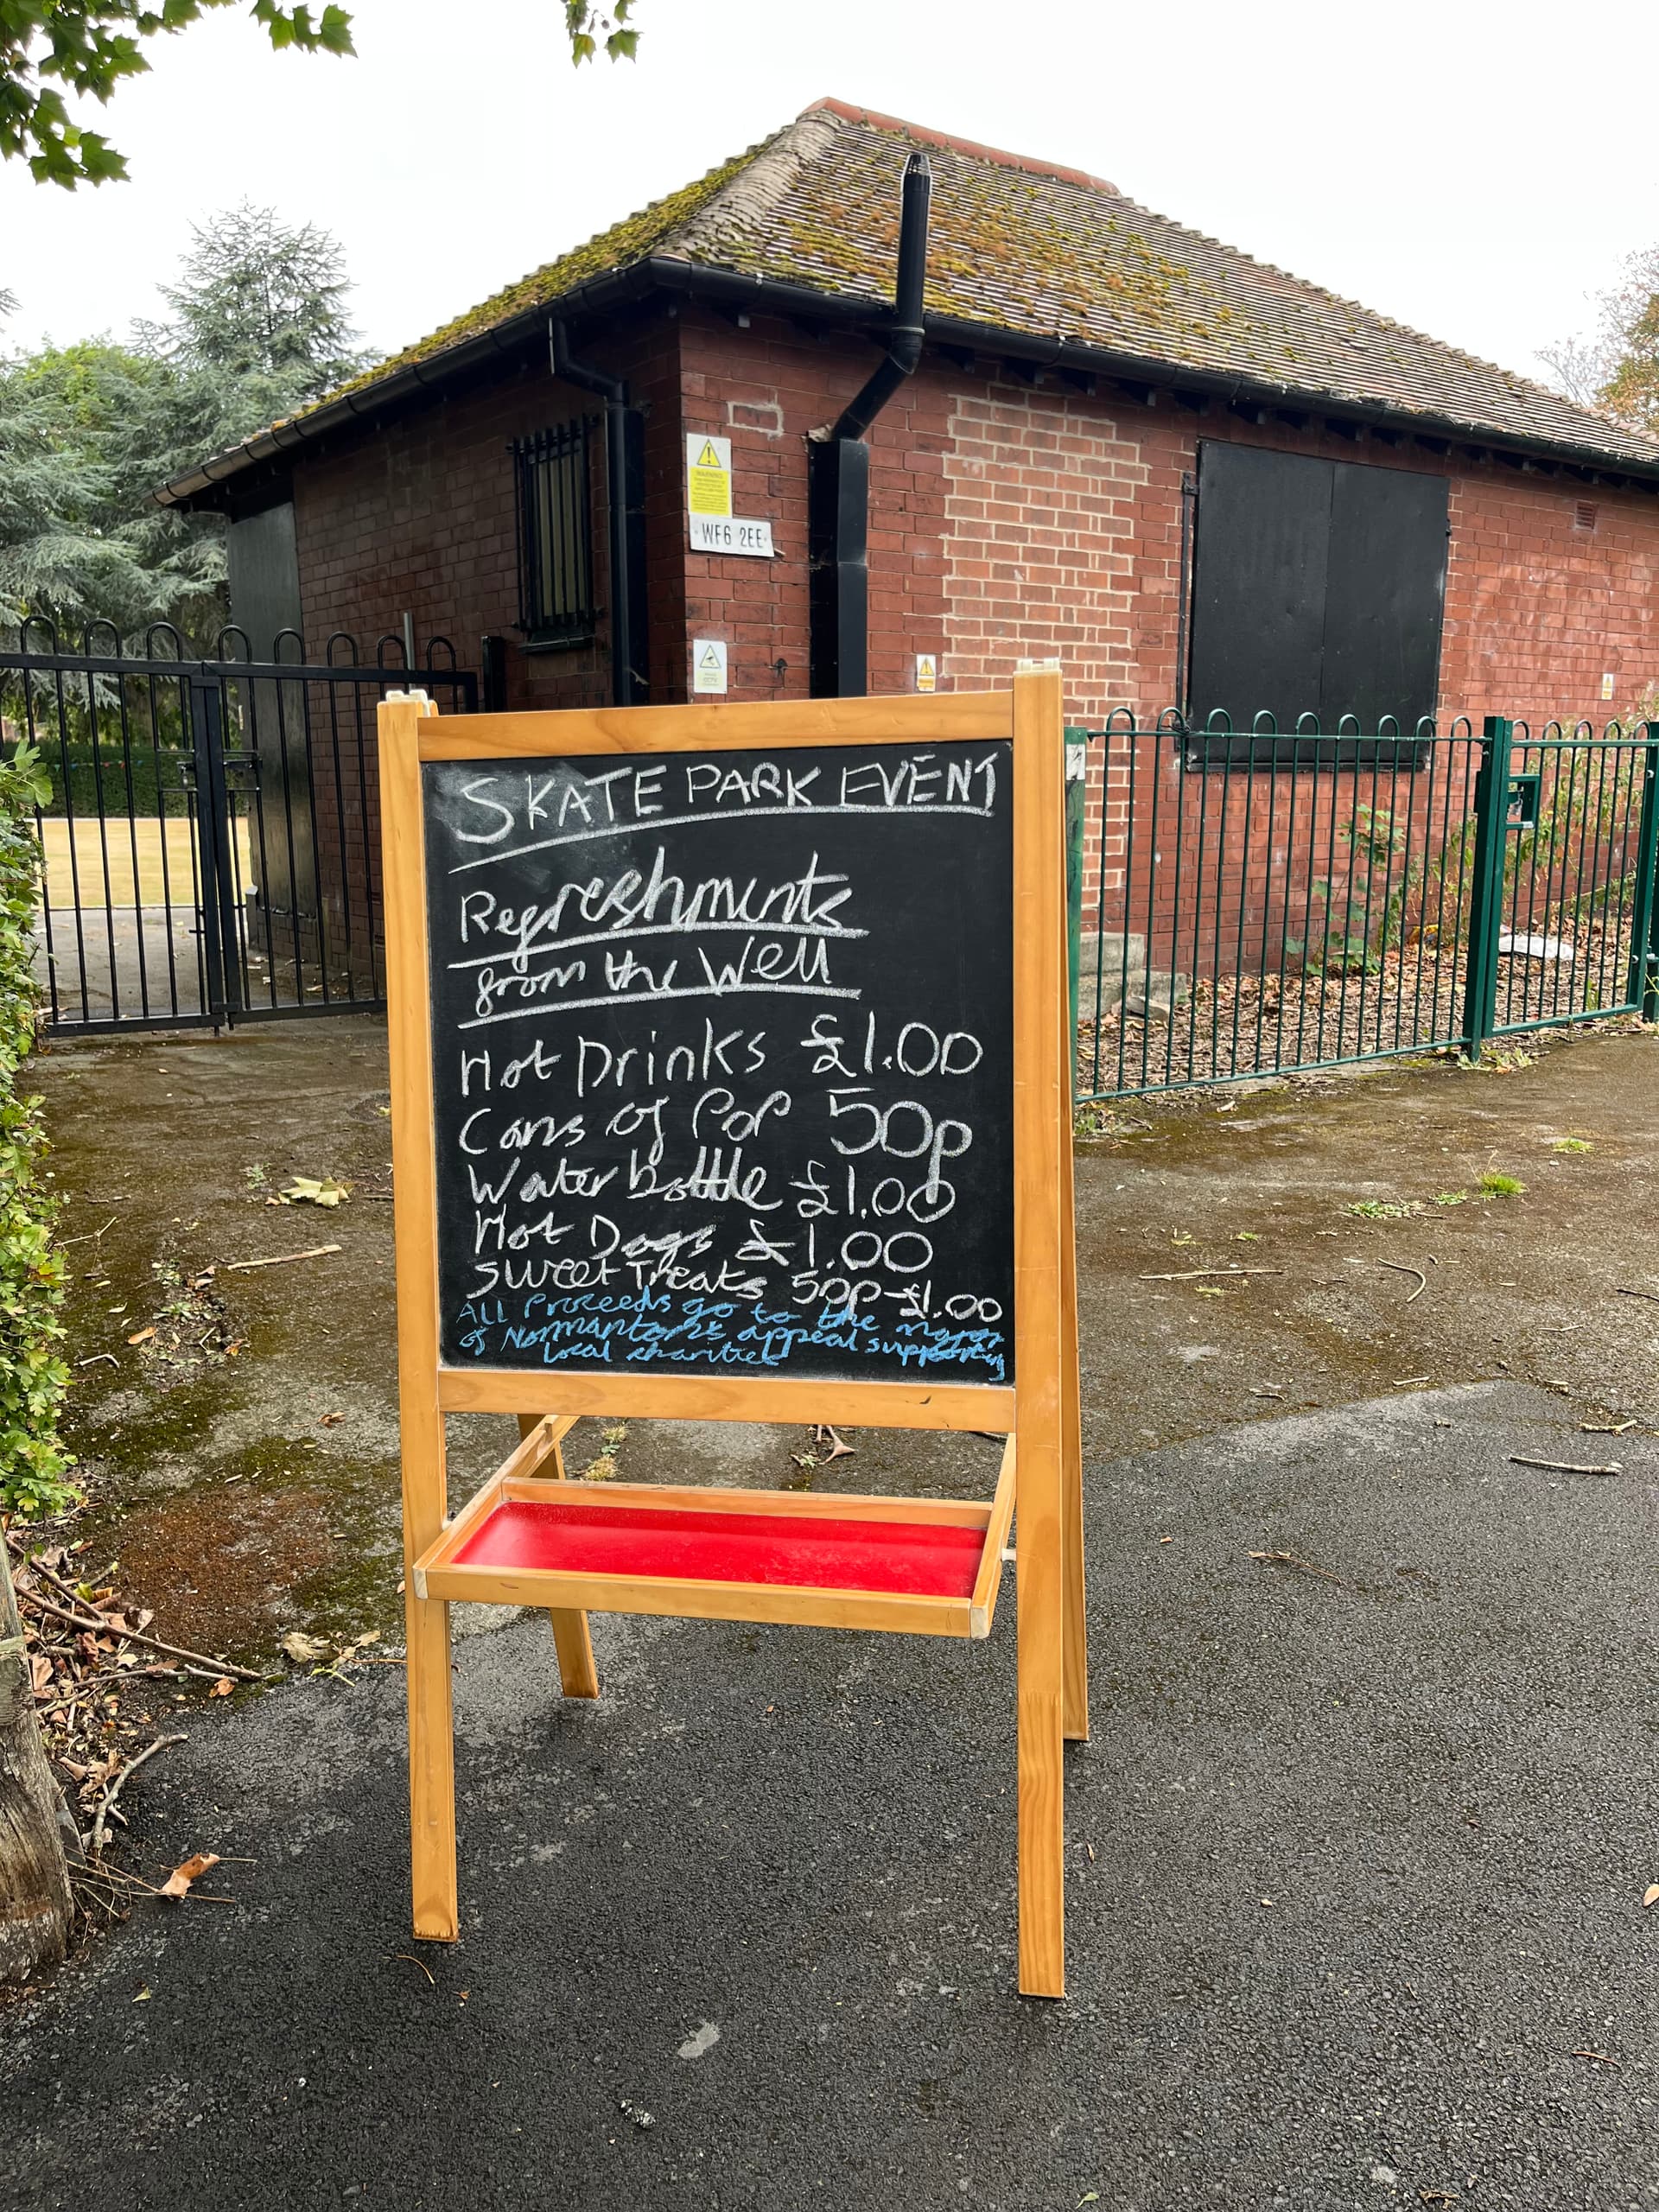 WARNING
WF6 2EE
SKATE PARK EVENT
Refreshments
from the Well
Hot Drinks £1.00
Cans of Pop 50p
Water bottle £1.00
Hot Dogs £1.00
Sweet Treats 50p-£1.00
All Proceeds go to the mayor
of Normanton's appeal supporting
local charities